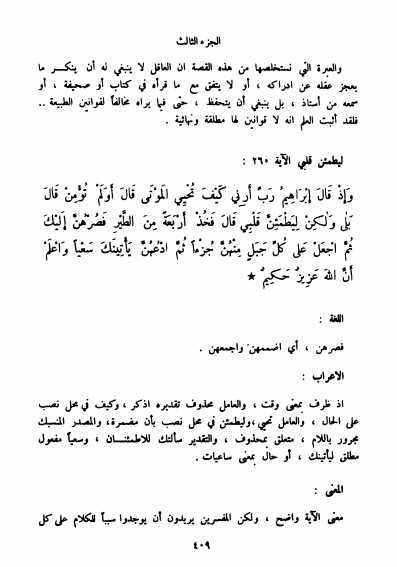 الجزء الثالث
والعبرة التي نستخلصها من هذه القصة ان العاقل لا ينبغي له أن ينكر ما
يعجز عقله عن ادراكه ، أو لا يتفق مع ما قرأه في كتاب أو صحيفة ، أو
سمعه من أستاذ ، بل ينبغي أن يتحفظ ، حتى فيما يراه مخالفاً لقوانين الطبيعة ..
فلقد أثبت العلم انه لا قوانين لها مطلقة ونهائية .
ليطمئن قلبي الآية ٢٦٠ :
وَإِذْ قَالَ إِبْرَاهِيمُ رَبِّ أَرِنِي كَيْفَ تُحْيِي الْمَوْتَى قَالَ أَوَلَمْ تُؤْمِنْ قَالَ
بَلَى وَلَكِنْ لِيَطْمَئِنَّ قَلْبِي قَالَ فَخُذْ أَرْبَعَةً مِنَ الطَّيْرِ فَصُرْهُنَّ إِلَيْكَ
ثُمَّ اجْعَلْ عَلَى كُلِّ جَبَلٍ مِنْهُنَّ جُزْءاً ثُمَّ ادْعُهُنَّ يَأْتِينَكَ سَعْياً وَاعْلَمْ
أَنَّ اللهَ عَزِيزٌ حَكِيمٌ ★
اللغة :
فصرهن ، أي اضممهن واجمعهن .
الاعراب :
اذ ظرف بمعنى وقت ، والعامل محذوف تقديره اذكر ، وكيف في محل نصب
على الحال ، والعامل تحيي ، وليطمئن في محل نصب بأن مضمرة، والمصدر المنسبك
مجرور باللام ، متعلق بمحذوف ، والتقدير سألتك للاطمئنان ، وسعياً مفعول
مطلق ليأتينك ، أو حال بمعنى ساعيات .
المعنى :
معنى الآية واضح ، ولكن المفسرين يريدون أن يوجدوا سبباً للكلام على كل
٤٠٩